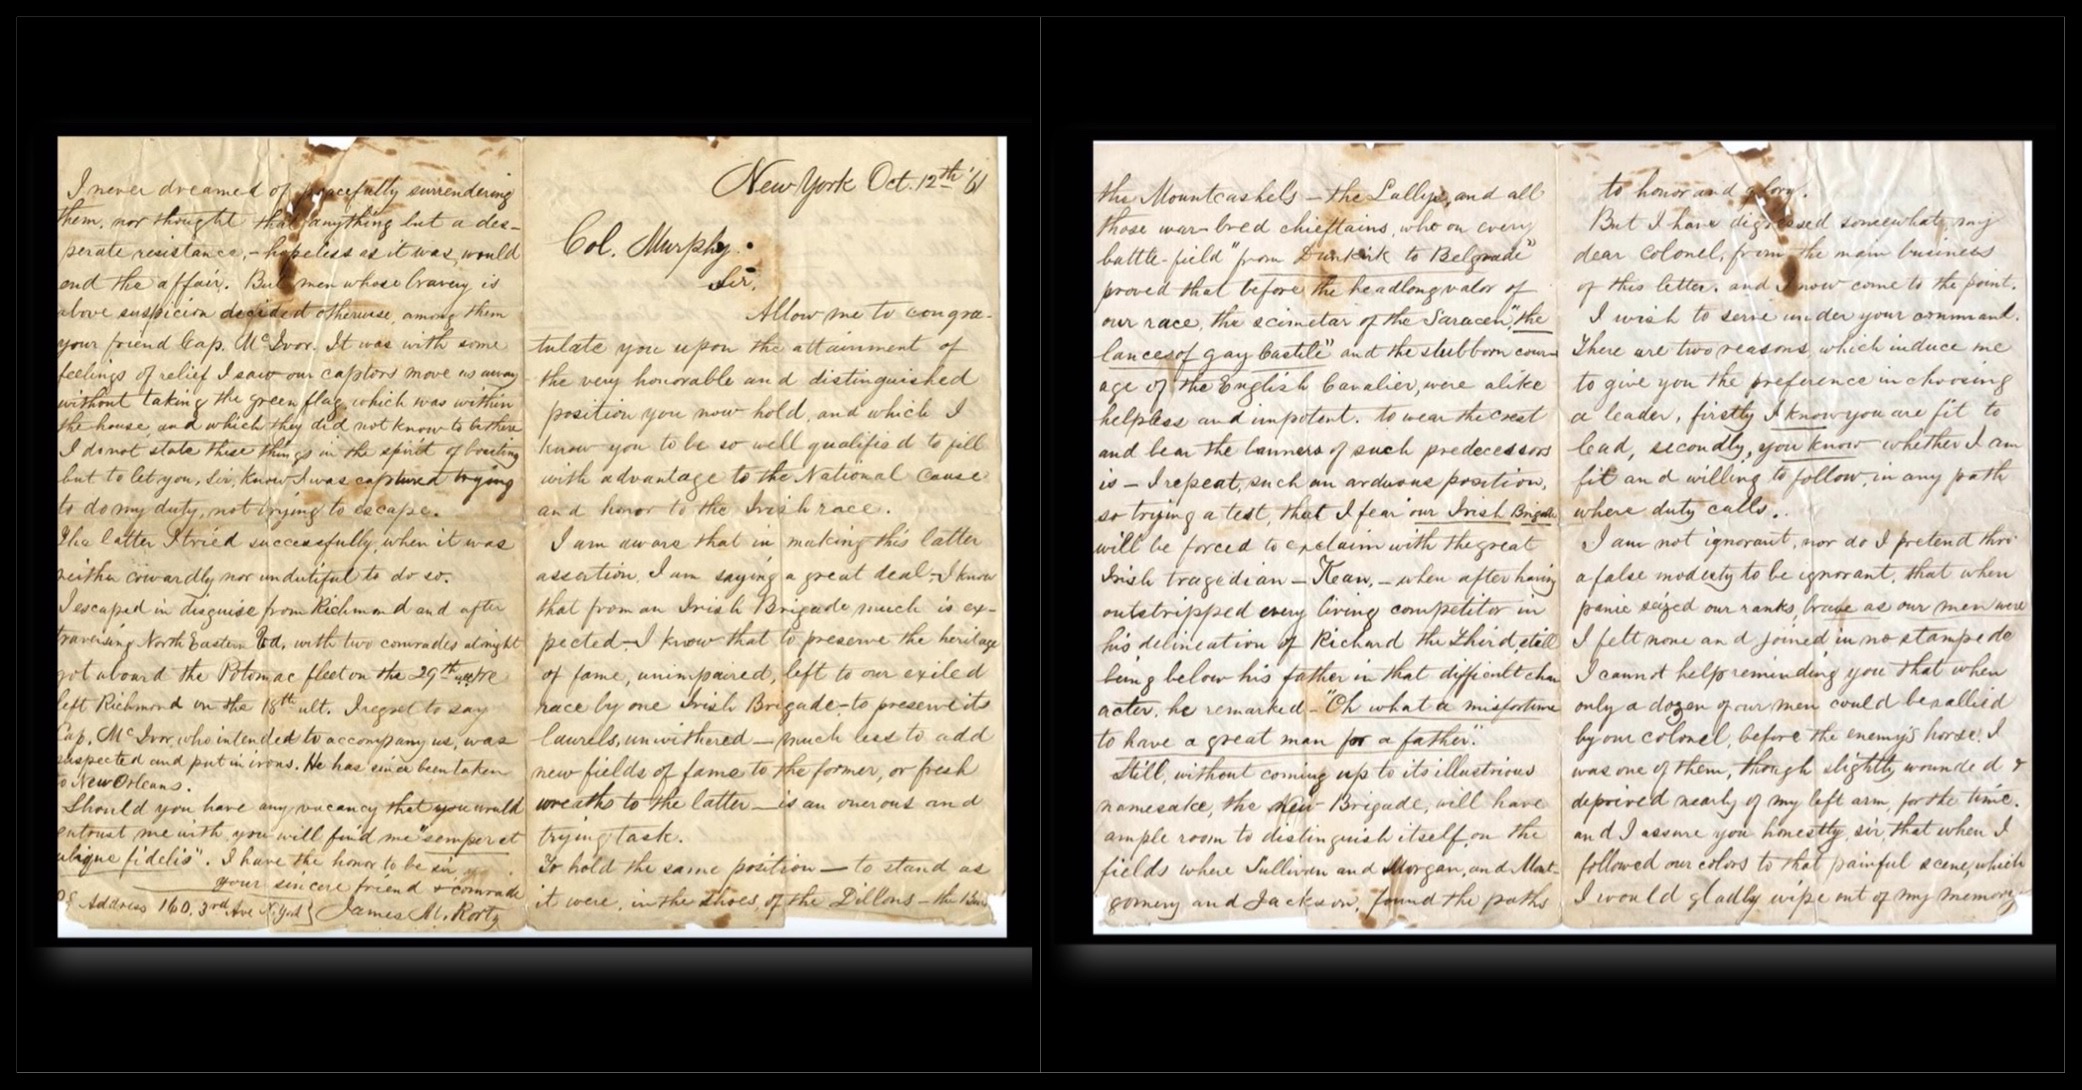 New York Oct. 12th '61
Col. Murphy.
Sir,
Allow me to congra-
tulate you upon the attainment of
the very honorable and distinguished
position you now hold, and which I
know you to be so well qualified to fill
with advantage to the National cause
and honor to the Irish race.
I am aware that in making this latter
assertion, I am saying a great deal - I know
that from an Irish Brigade much is ex-
pected - I know that to preserve the heritage
of fame, unimpaired, left to our exiled
race by one Irish Brigade - to preserve its
laurels, unwithered — much less to add
new fields of fame to the former, or fresh
wreaths to the latter — is an onerous and
trying task.
To hold the same position — to stand as
it were, in the shoes, of the Dillons - the
the Mountcashels — the Lallys, and all
those war-bred chieftains, who on every
battle-field "from Dunkirk to Belgrade"
proved that before the headlong valor of
our race, the scimetar of the Saracen, "the
lances of gay Castile" and the stubborn cour-
age of the English Cavalier, were alike
helpless and impotent. to wear the crest
and bear the banners of such predecessors
is — I repeat, such an arduous position,
so trying a test, that I fear our Irish Brigade
will be forced to exclaim with the great
Irish tragedian — Kean, — when after having
outstripped every living competitor in
his delineation of Richard the Third, still
being below his father in that difficult char
acter, he remarked - "Oh what a misfortune
to have a great man for a father".
Still, without coming up to its illustrious
namesake, the new Brigade, will have
ample room to distinguish itself, on the
fields where Sullivan and Morgan, and Mont-
gomery and Jackson, found the paths
to honor and glory.
But I have digressed somewhat, my
dear Colonel, from the main business
of this letter. and I now come to the point.
I wish to serve under your command.
There are two reasons, which induce me
to give you the preference in choosing
a leader, firstly I know you are fit to
lead, secondly, you know whether I am
fit and willing to follow, in any path
where duty calls.
I am not ignorant, nor do I pretend thro'
a false modesty to be ignorant, that when
panic seized our ranks, brave as our men were
I felt none and joined in no stampede
I cannot help reminding you that when
only a dozen of our men could be rallied
by our colonel, before the enemy's horse, I
was one of them, though slightly wounded &
deprived nearly of my left arm, for the time.
and I assure you honestly, sir, that when I
followed our colors to that painful scene, which
I would gladly wipe out of my memory
I never dreamed of peacefully surrendering
them, nor thought that anything but a des-
perate resistance, - hopeless as it was, would
end the affair. But men whose bravery is
above suspicion decided otherwise, among them
your friend Cap. McIvor. It was with some
feelings of relief I saw our captors move us away
without taking the green flag, which was within
the house, and which they did not know to be there
I do not state these things in the spirit of boasting
but to let you, sir, know I was captured trying
to do my duty, not trying to escape.
The latter I tried successfully, when it was
neither cowardly nor undutiful to do so.
I escaped in disguise from Richmond and after
traversing North Eastern with two comrades at night
got aboard the Potomac fleet on the 29th
left Richmond on the 18th ult. I regret to say
Cap. McIvor, who intended to accompany us, was
suspected and put in irons. He has since been taken
to New Orleans.
Should you have any vacancy that you would
entrust me with, you will find me "semper et
ubique fidelis". I have the honor to be sir,
your sincere friend & comrade
PS Address 160. 3rd Ave N. York} James M. Rorty